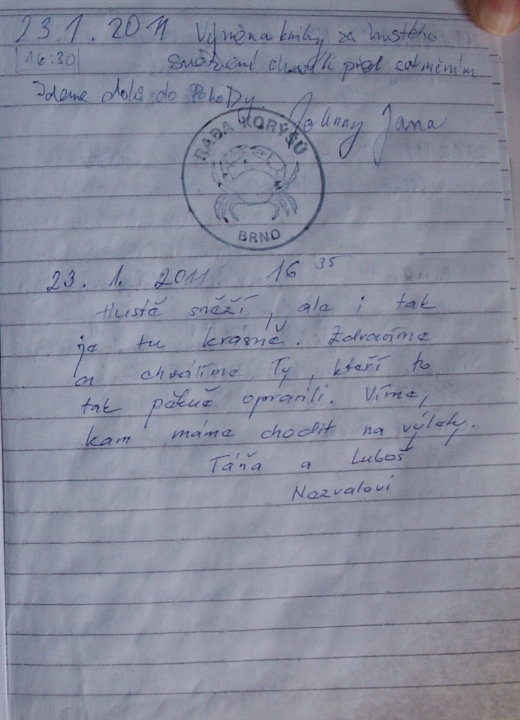 23.1.2011 Výměna knihy za hustého
16:30 sněžení chvíli před setměním
Jdeme dolů do Pohody. Johnny Jana
RADA KORÝŠŮ
BRNO
23. 1. 2011 16 35
Hustě sněží, ale i tak
je tu krásně. Zdravíme
a chválíme Ty, kteří to
tak pěkně opravili. Víme,
kam máme chodit na výlety.
Táňa a Luboš
Nezvalovi